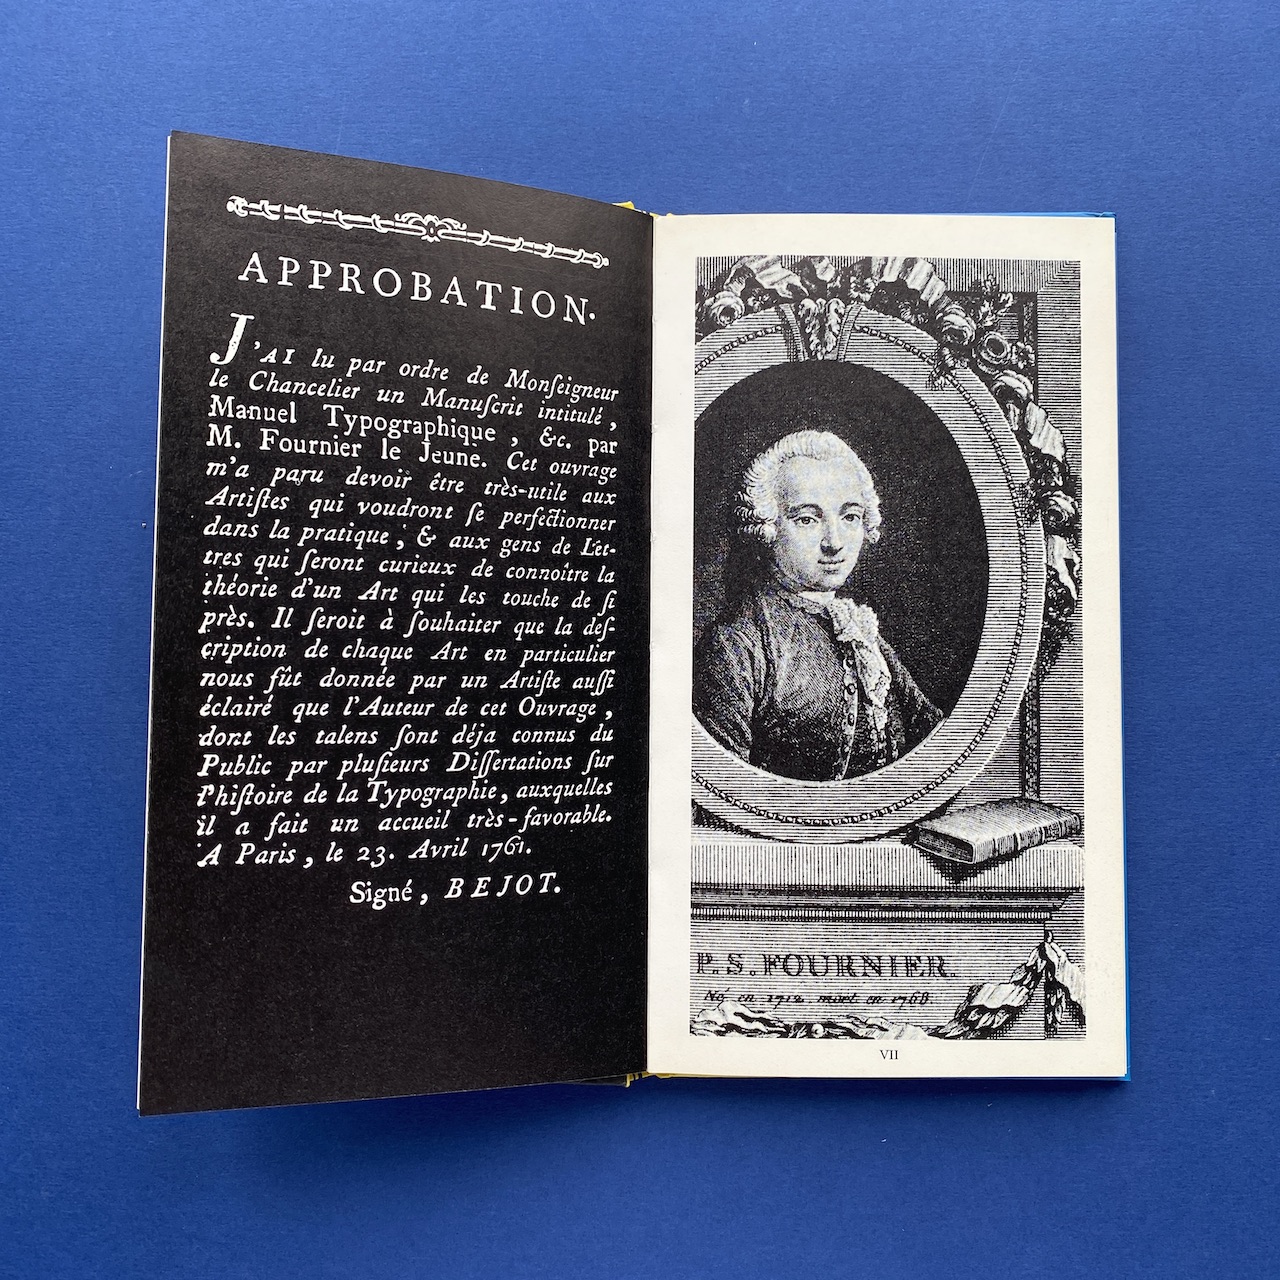 APPROBATION.
J'AI lu par ordre de Monſeigneur
le Chancelier un Manuſcrit intitulé,
Manuel Typographique, &c. par
M. Fournier le Jeune. Cet ouvrage
m'a paru devoir être très-utile aux
Artiſtes qui voudront ſe perfectionner
dans la pratique; & aux gens de Let-
tres qui ſeront curieux de connoître la
théorie d'un Art qui les touche de ſi
près. Il ſeroit à ſouhaiter que la deſ-
cription de chaque Art en particulier
nous fût donnée par un Artiſte auſſi
éclairé que l'Auteur de cet Ouvrage,
dont les talens ſont déja connus du
Public par pluſieurs Diſſertations ſur
l'hiſtoire de la Typographie, auxquelles
il a fait un accueil très-favorable.
A Paris, le 23. Avril 1761.
Signé, BEJOT.
P. S. FOURNIER.
Né en 1712 mort en 1768
VII